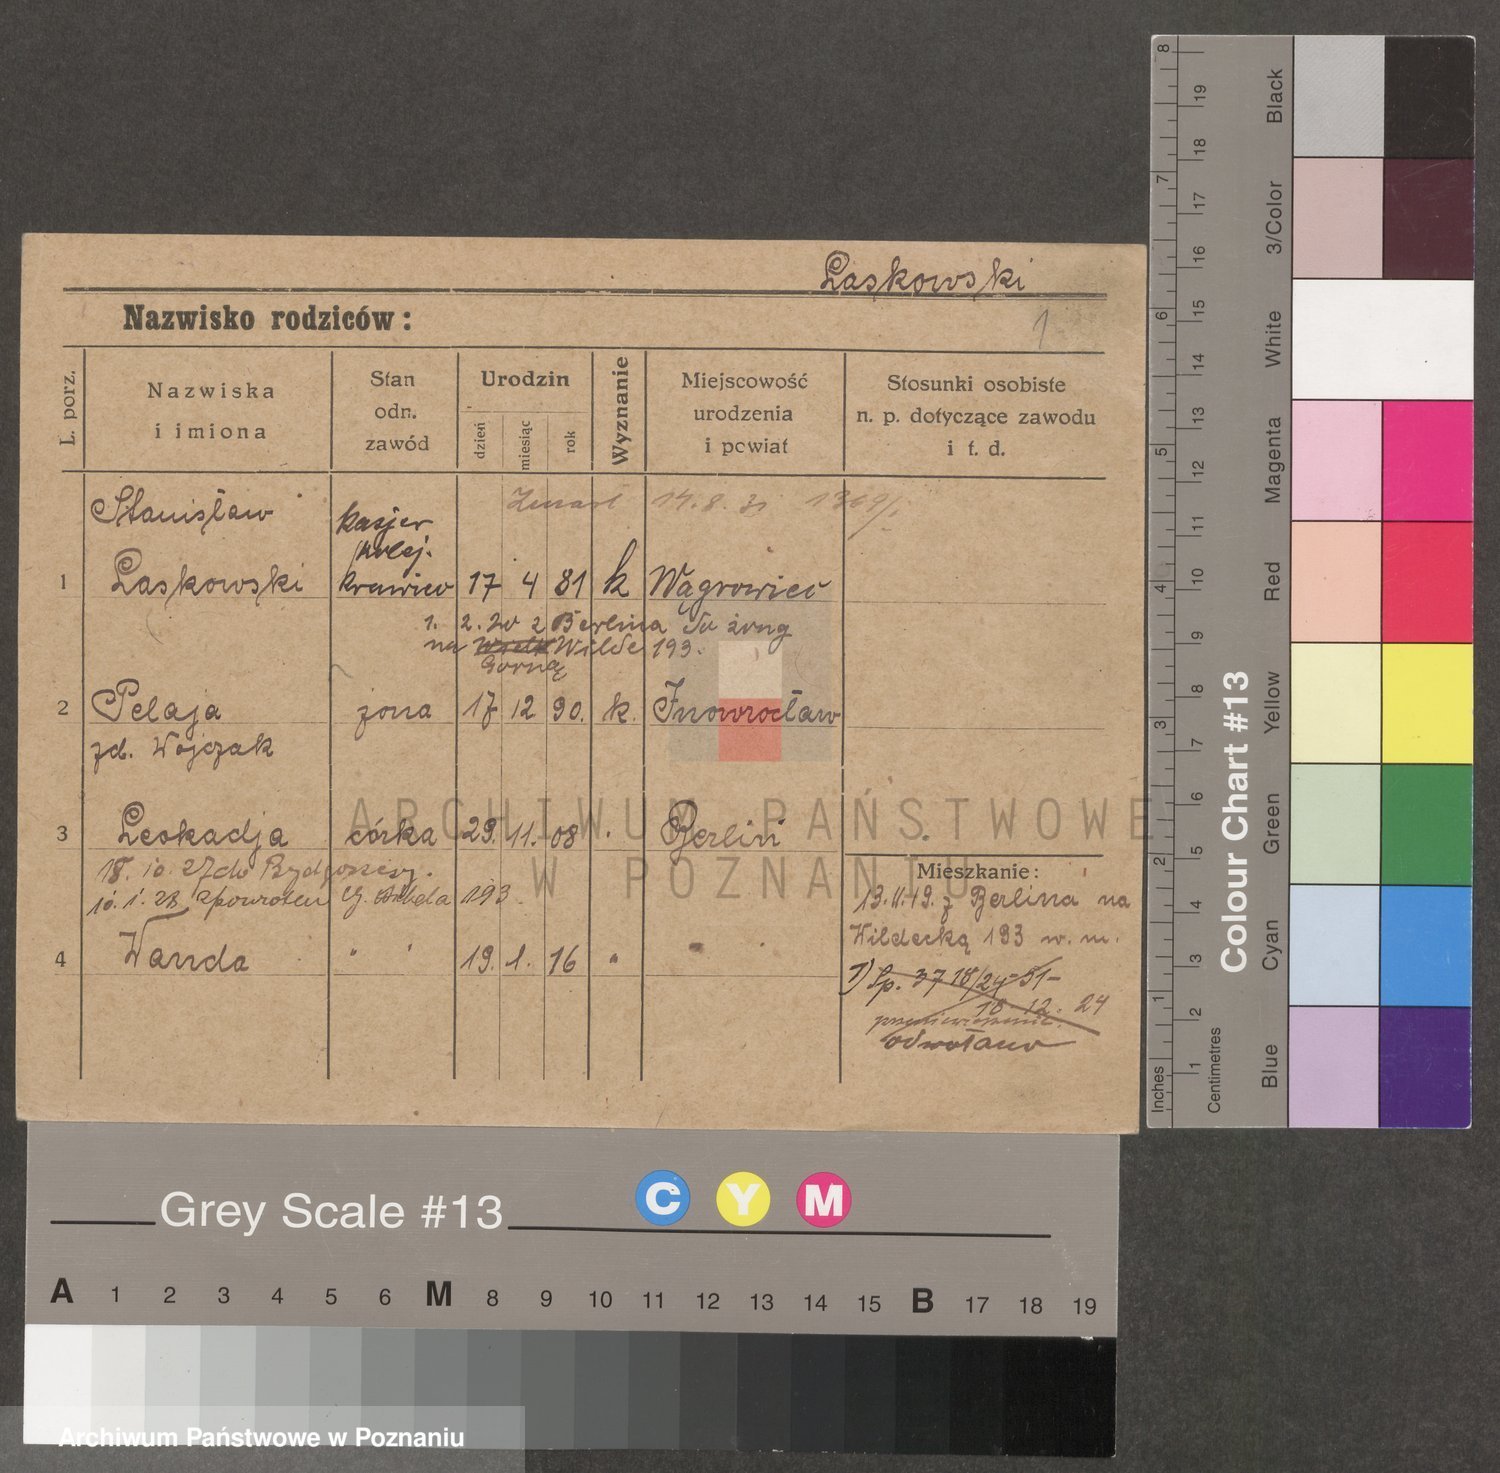 Laskowski
Nazwisko rodziców:
1
L. porz.
Nazwiska
i imiona
Stan
odn.
zawód
Urodzin
dzień
miesiąc
rok
Wyznanie
Miejscowość
urodzenia
i powiat
Stosunki osobiste
n. p. dotyczące zawodu
i t. d.
Zmarł 14.8.31 1369/
Stanisław
kasjer
kolej.
1 Laskowski krawiec 17 4 81 k Wągrowiec
1. 2. 20 z Berlina do żony
na Wilde 193.
Górną
2 Pelaja żona 17 12 90. k. Inowrocław
zd. Wojczak
3 Leokadja córka 29. 11. 08 Berlin
18. 10. 27 do Bydgoszczy.
10. 1. 28 zpowrotem G. Wilda 193.
4 Wanda " 19. 1. 16 "
Mieszkanie:
13.11.19. z Berlina na
Wildecką 193 w. m.
1) Sp. 3718/24-51-
18.12.24
odwołano
ARCHIWUM PAŃSTWOWE
W POZNANIU
Grey Scale #13
C Y M
A 1 2 3 4 5 6 M 8 9 10 11 12 13 14 15 B 17 18 19
Archiwum Państwowe w Poznaniu
Colour Chart #13
Blue Cyan Green Yellow Red Magenta White 3/Color Black
Inches 1 2 3 4 5 6 7 8
Centimetres 1 2 3 4 5 6 7 8 9 10 11 12 13 14 15 16 17 18 19